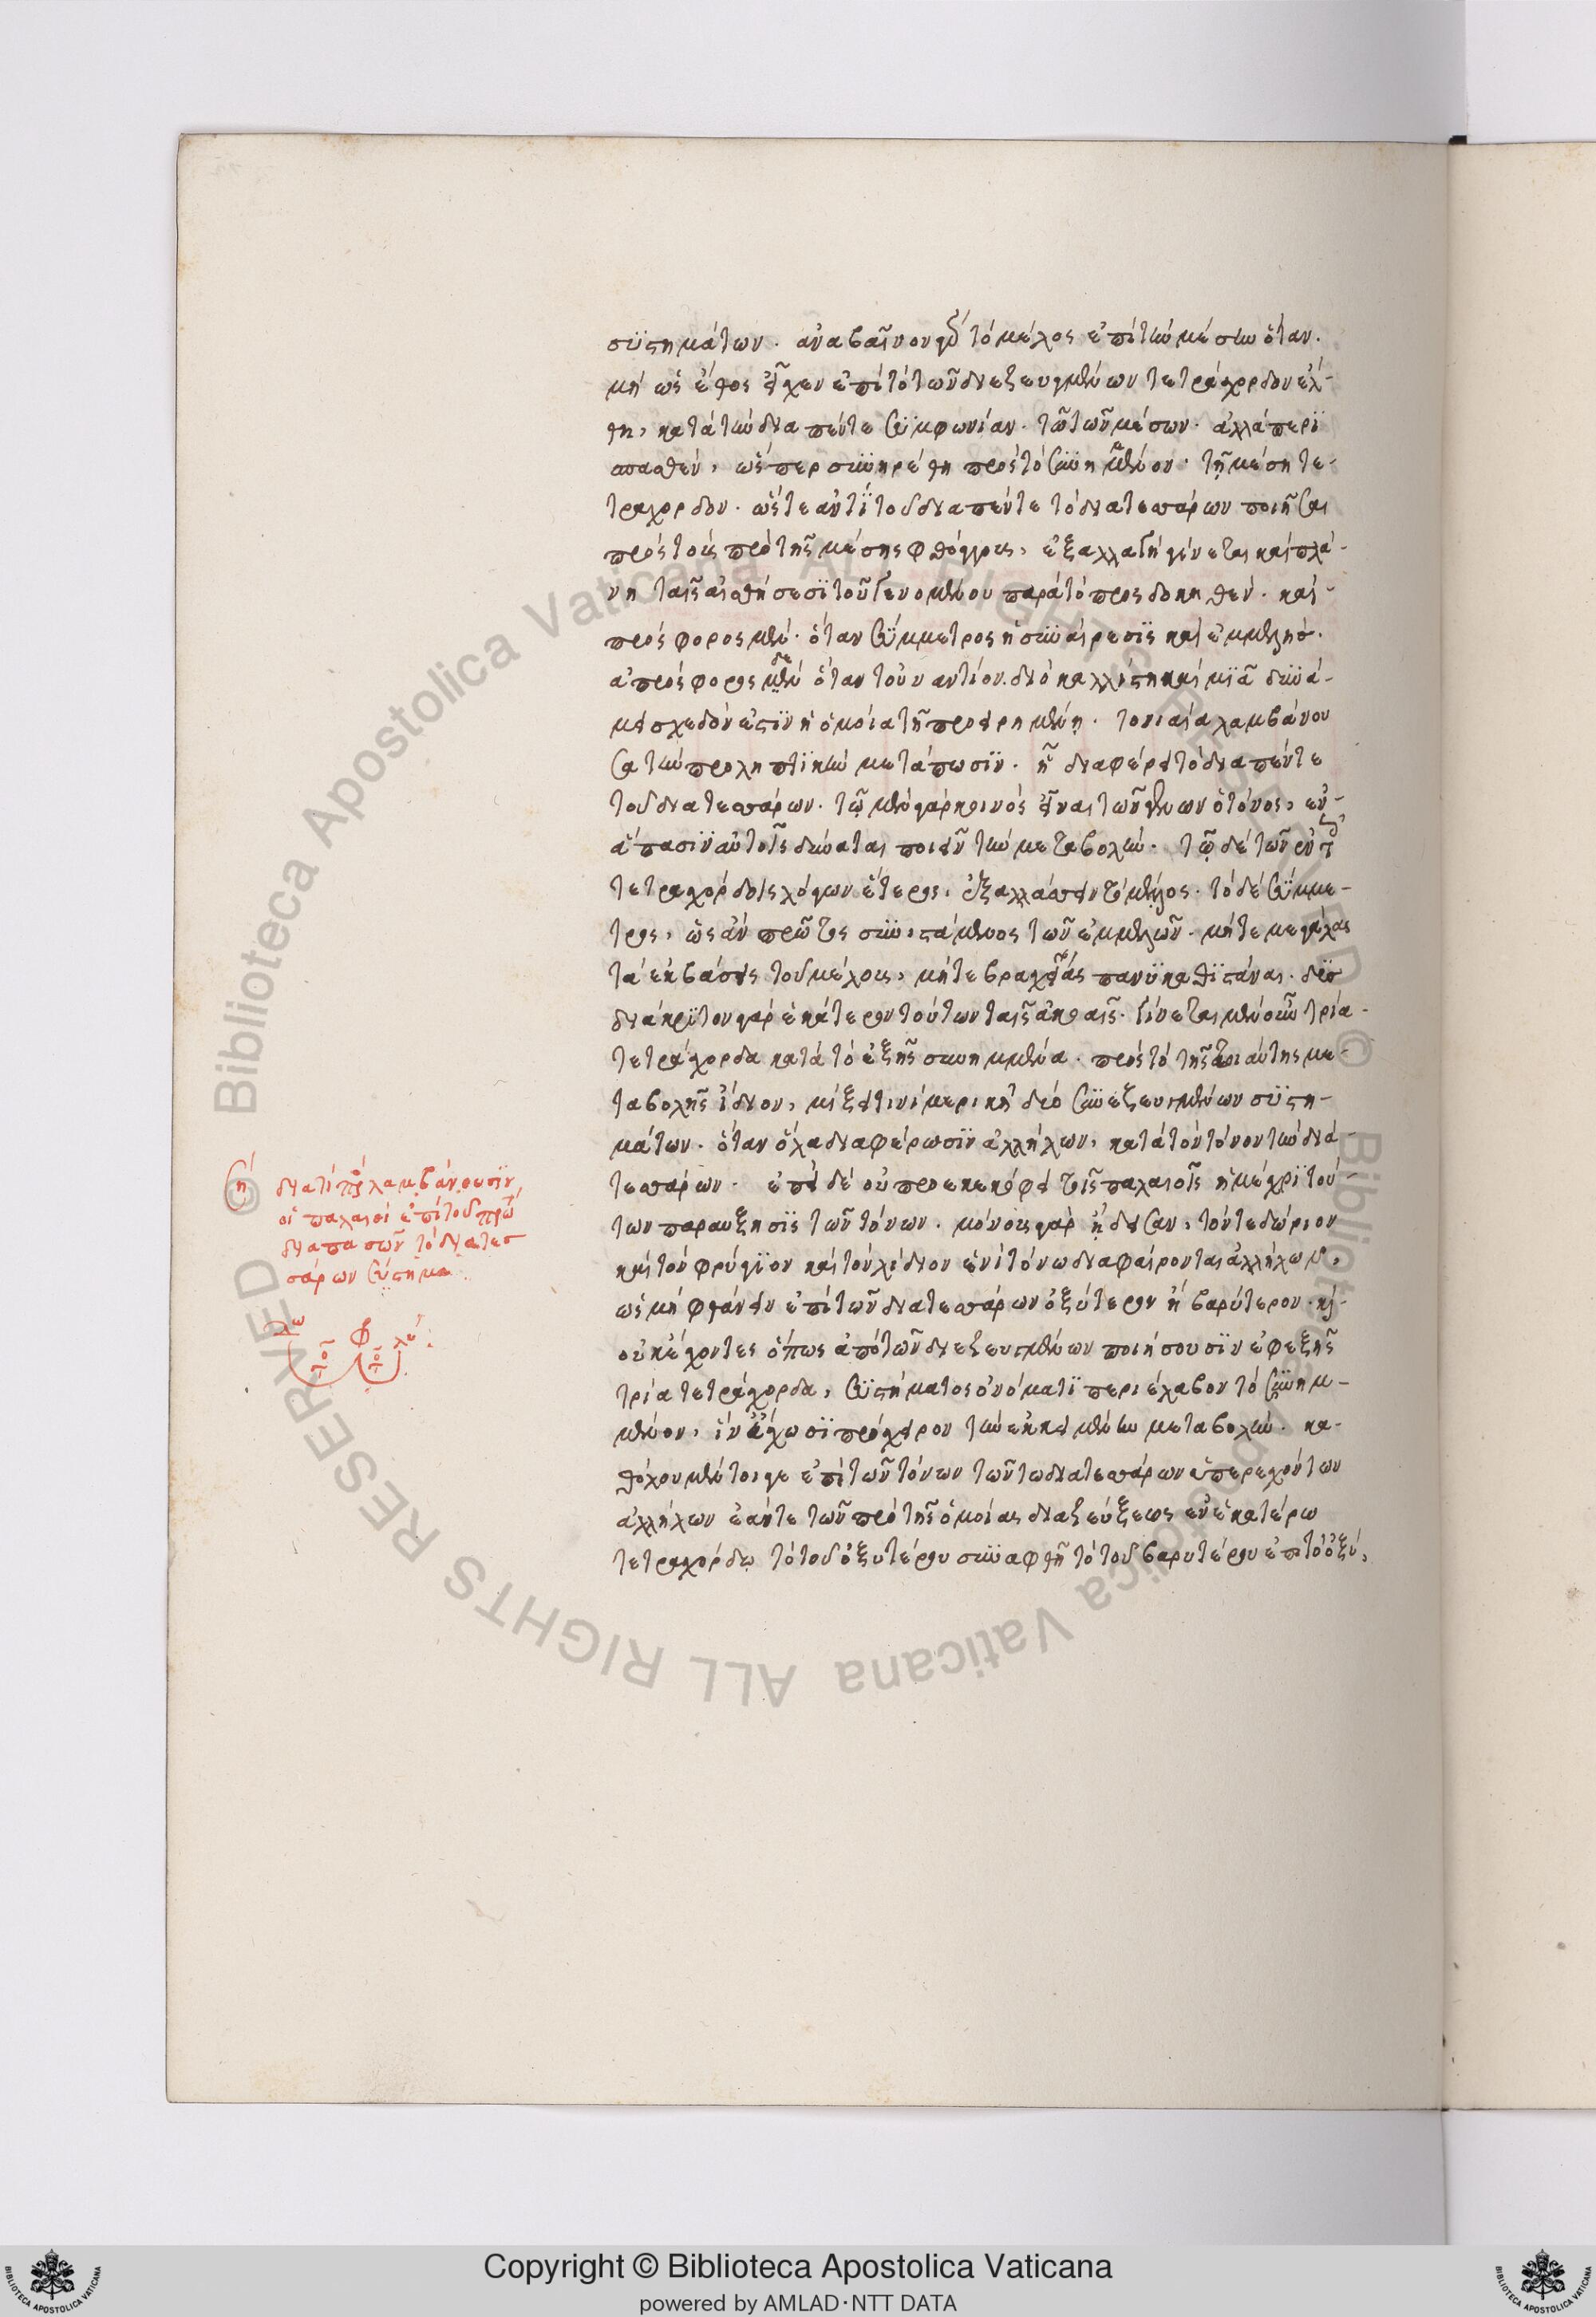 συστημάτων. ἀναβαῖνον γὰρ τὸ μέλος ἐπὶ τὴν μέσην ὅταν.
μὴ ὡς ἔθος εἶχεν ἐπὶ τὸ τῶν διεζευγμένων τετράχορδον ἔλ-
θη, κατὰ τὴν διὰ πέντε συμφωνίαν. τῶ τῶν μέσων. ἀλλὰ περι
σπασθὲν, ὥσπερ συνηρέθη πρὸς τὸ συνημμένον. τῇ μέση τε-
τράχορδον. ὥστε ἀντὶ τοῦ διὰ πέντε τὸ διὰ τεσσάρων ποιῆσαι
πρὸς τοὺς πρὸ τῆς μέσης φθόγγους, ἐξαλλαγὴ γίνεται καὶ πλά-
νη ταῖς αἰσθήσεσι τοῦ γενομένου παρὰ τὸ προσδοκηθέν. καὶ-
πρόσφορος μὲν. ὅταν σύμμετρος ἡ συναίρεσις καὶ ἐμμελὴς.
ἀπρόσφορος δὲ ὅταν τοὐναντίον. διὸ καλλίστη καὶ μία δυνά-
μει σχεδὸν ἐστὶν ἡ ὁμοία τῇ προειρημένῃ. τονιαία λαμβάνου
σα τὴν προληπτικὴν μετάπωσιν. ἧ διαφέρει τὸ διὰ πέντε
τοῦ διὰ τεσσάρων. τῷ μὲν γὰρ κοινὸς εἶναι τῶν γενῶν ὁ τόνος, ἐν-
ἅπασιν αὐτοῖς δύναται ποιεῖν τὴν μεταβολήν. τῷ δὲ τῶν ἐν τοῖς
τετραχόρδοις λόγων ἕτερος, ἐξαλλάσσειν τὸ μέλος. τὸ δὲ σύμμε-
τρος, ὡς ἂν πρῶτος συνιστάμενος τῶν ἐμμελῶν. μήτε μεγάλας
τὰ ἐκβάσεις τοῦ μέλους, μήτε βραχείας πάνυ καθιστάναι. δυσ
διάκριτον γὰρ ἑκάτερον τούτων ταῖς ἀκοαῖς. Γίνεται μὲν οὖν τρία-
τετράχορδα κατὰ τὸ ἑξῆς συνημμένα. πρὸς τὸ τῆς τοιαύτης με-
ταβολῆς ἴδιον, μίξει τινὶ μερικῇ δύο συνεζευγμένων συστη-
μάτων. ὅταν ὅλα διαφέρωσιν ἀλλήλων, κατὰ τὸν τόνον τῶ διὰ-
τεσσάρων. ἐπεὶ δὲ οὐ προεκεκόφει τοῖς παλαιοῖς ἡ μέχρι τού-
των παραυξησις τῶν τόνων. μόνους γὰρ ᾔδεσαν, τόν τε δώριον
καὶ τὸν φρύγιον καὶ τὸν λύδιον ἑνὶ τόνω διαφαίρονται ἀλλήλων,
ὡς μὴ φθάνειν ἐπὶ τῶν διὰ τεσσάρων ὀξύτερον ἢ βαρύτερον. καὶ-
οὐκ ἔχοντες ὅπως ἀπὸ τῶν διεζευγμένων ποιήσουσιν ἐφεξῆς
τρία τετράχορδα, συστήματος ὀνόματι περιέλαβον τὸ συνημ-
μένον, ἵν᾽ ἔχωσι πρόχειρον τὴν ἐκκειμένην μεταβολήν. κα-
θόλου μέντοιγε ἐπὶ τῶν τόνων τῶν τῶ διὰ τεσσάρων ὑπερεχόντων
ἀλλήλων ἐάντε τῶν πρὸ τῆς ὁμοίας διαζεύξεως ἐν ἑκατέρω
τετραχόρδῳ τὸ τοῦ ὀξυτέρου συναφθῇ τὸ τοῦ βαρυτέρου ἐπὶ τὸ ὀξύ,
ση
διατί προλαμβάνουσιν
οἱ παλαιοὶ ἐπὶ τοῦ πρώ
διαπασῶν τὸ διατεσ
σάρων σύστημα.